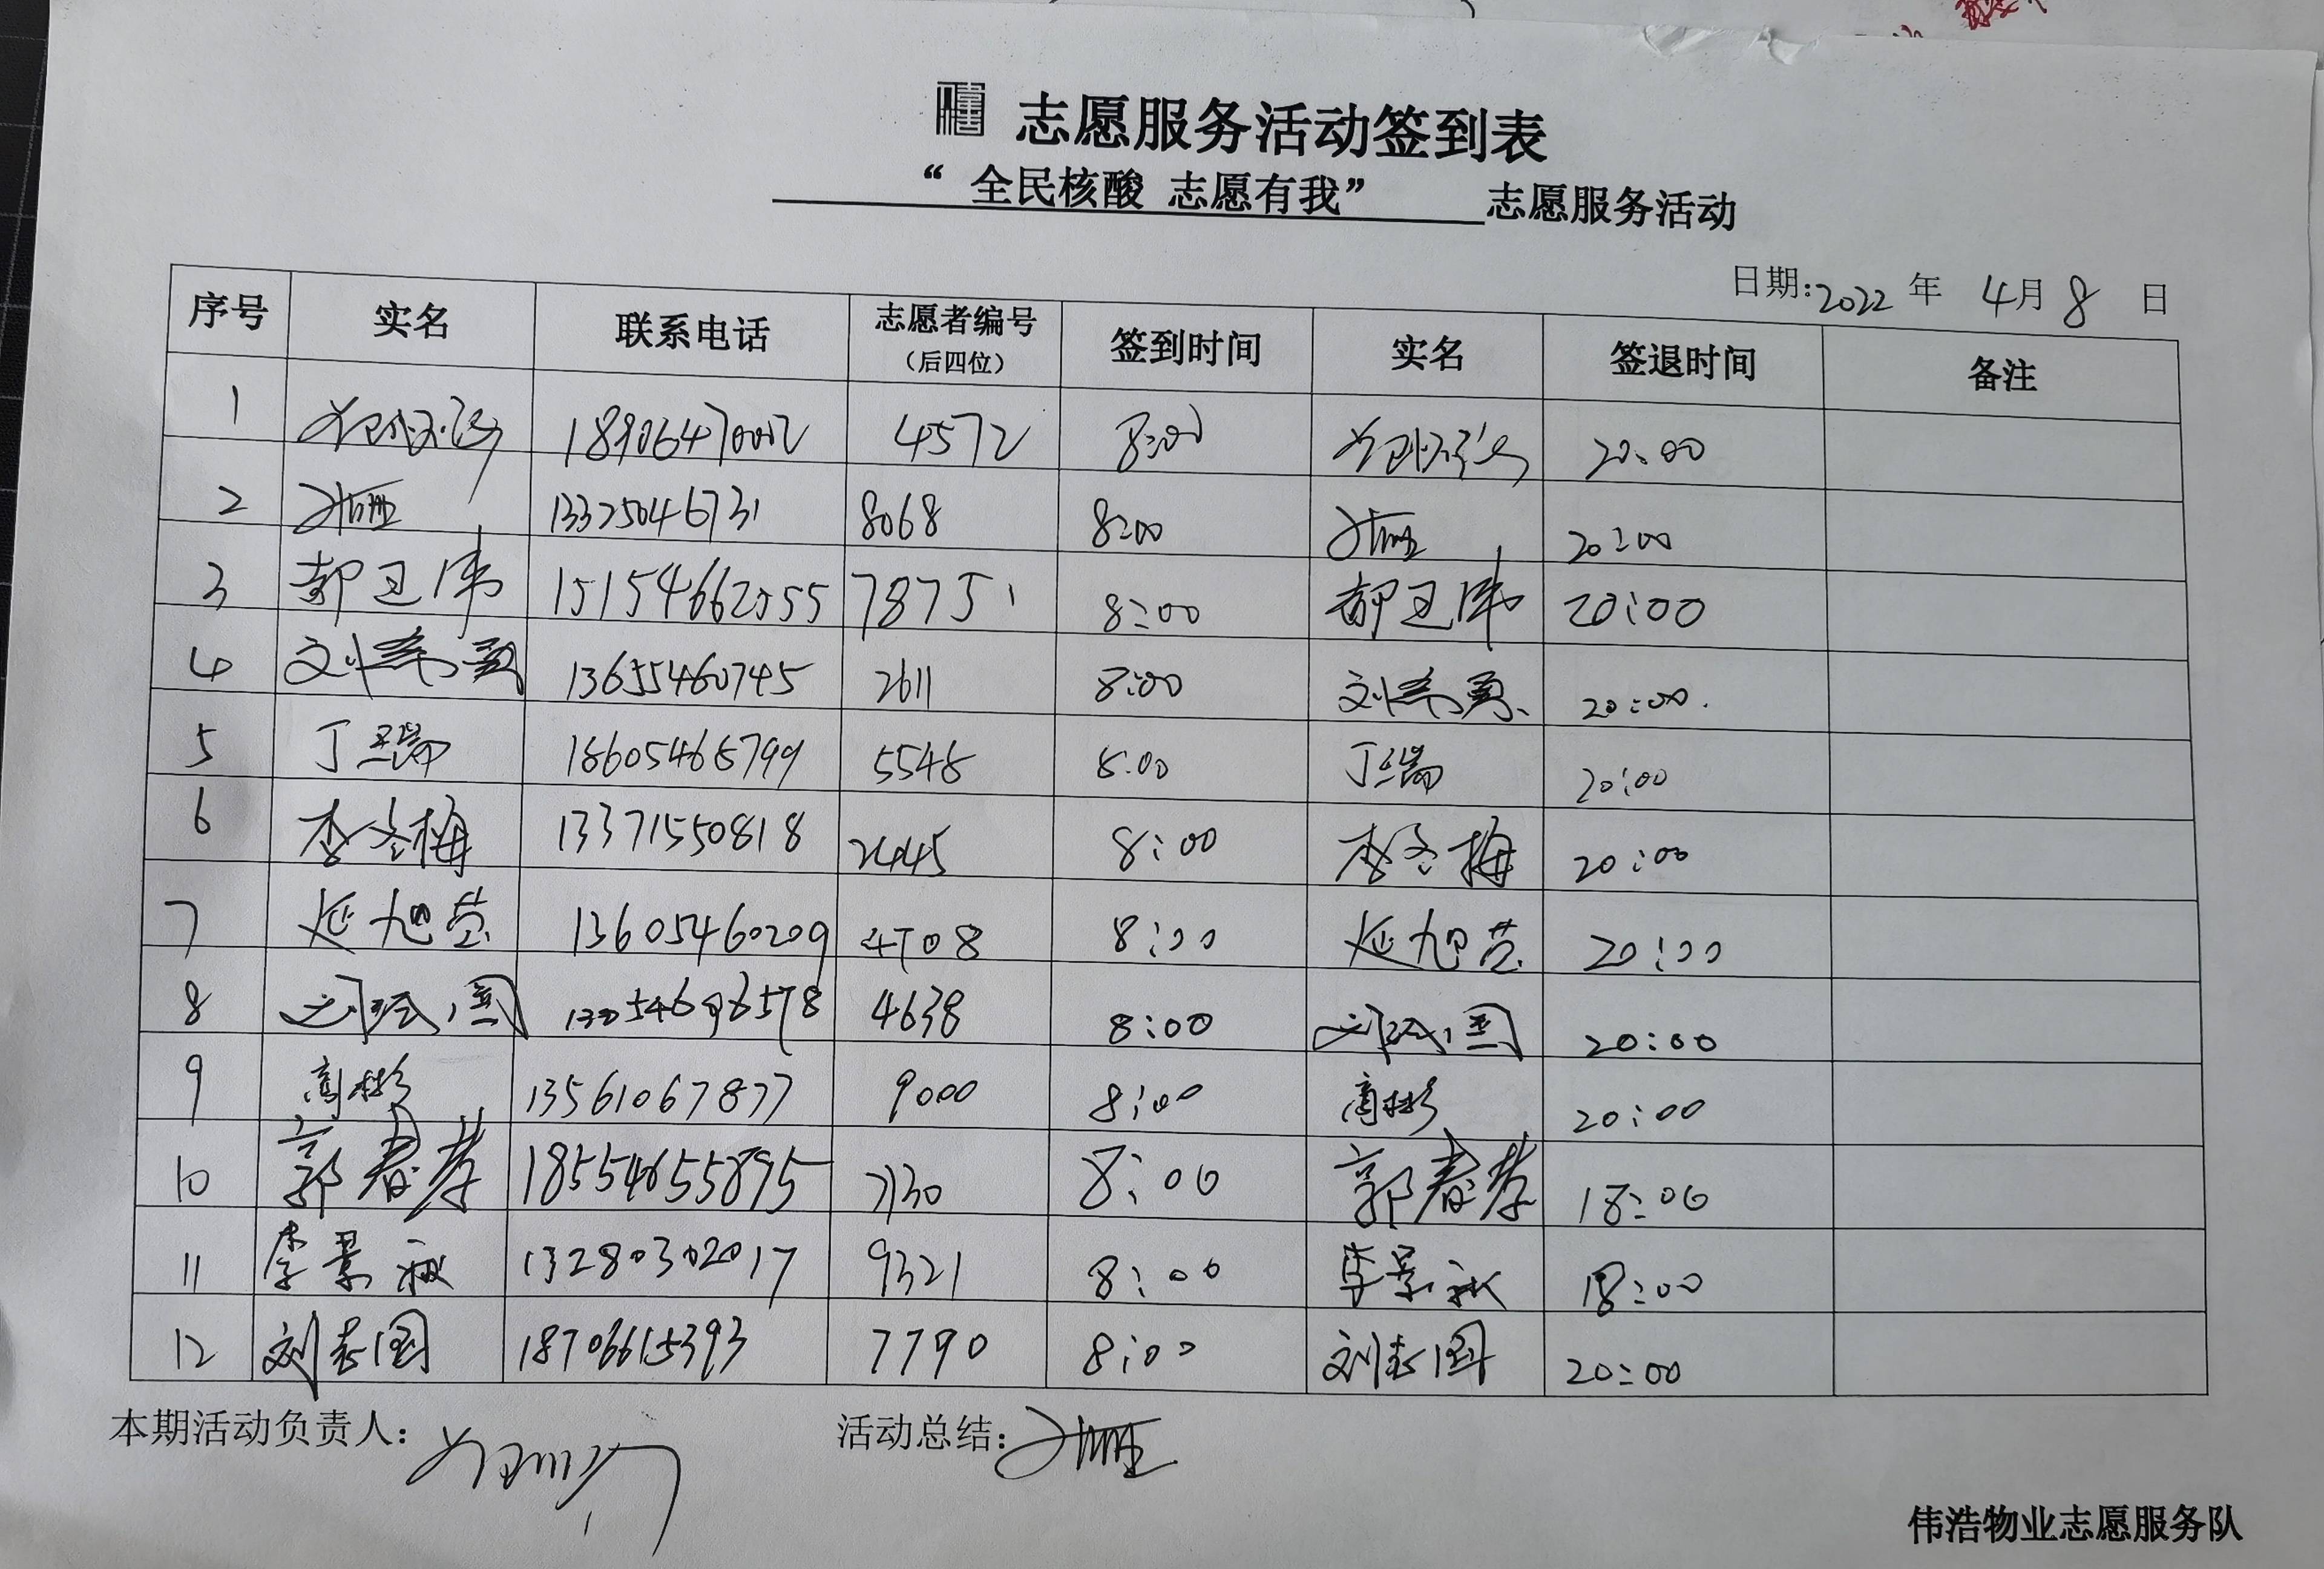 志愿服务活动签到表
“ 全民核酸 志愿有我” 志愿服务活动
日期:2022 年 4月 8 日
序号 实名 联系电话 志愿者编号（后四位） 签到时间 实名 签退时间 备注
1 18906470002 4572 8:00 20:00
2 13325046731 8068 8:00 20:00
3 郝卫伟 15154662555 78751 8:00 郝卫伟 20:00
4 刘秀勇 13655460745 2611 8:00 刘秀勇 20:00
5 丁瑞 18605468799 5548 8:00 丁瑞 20:00
6 李冬梅 13371550818 2445 8:00 李冬梅 20:00
7 延旭芸 13605460209 4708 8:00 延旭芸 20:00
8 4638 8:00 20:00
9 高彬 13561067877 9000 8:00 高彬 20:00
10 郭春孝 18554655895 7130 8:00 郭春孝 18:00
11 李景秋 13280302017 9321 8:00 李景秋 18:00
12 刘志国 18706615393 7790 8:00 刘志国 20:00
本期活动负责人: 活动总结:
伟浩物业志愿服务队